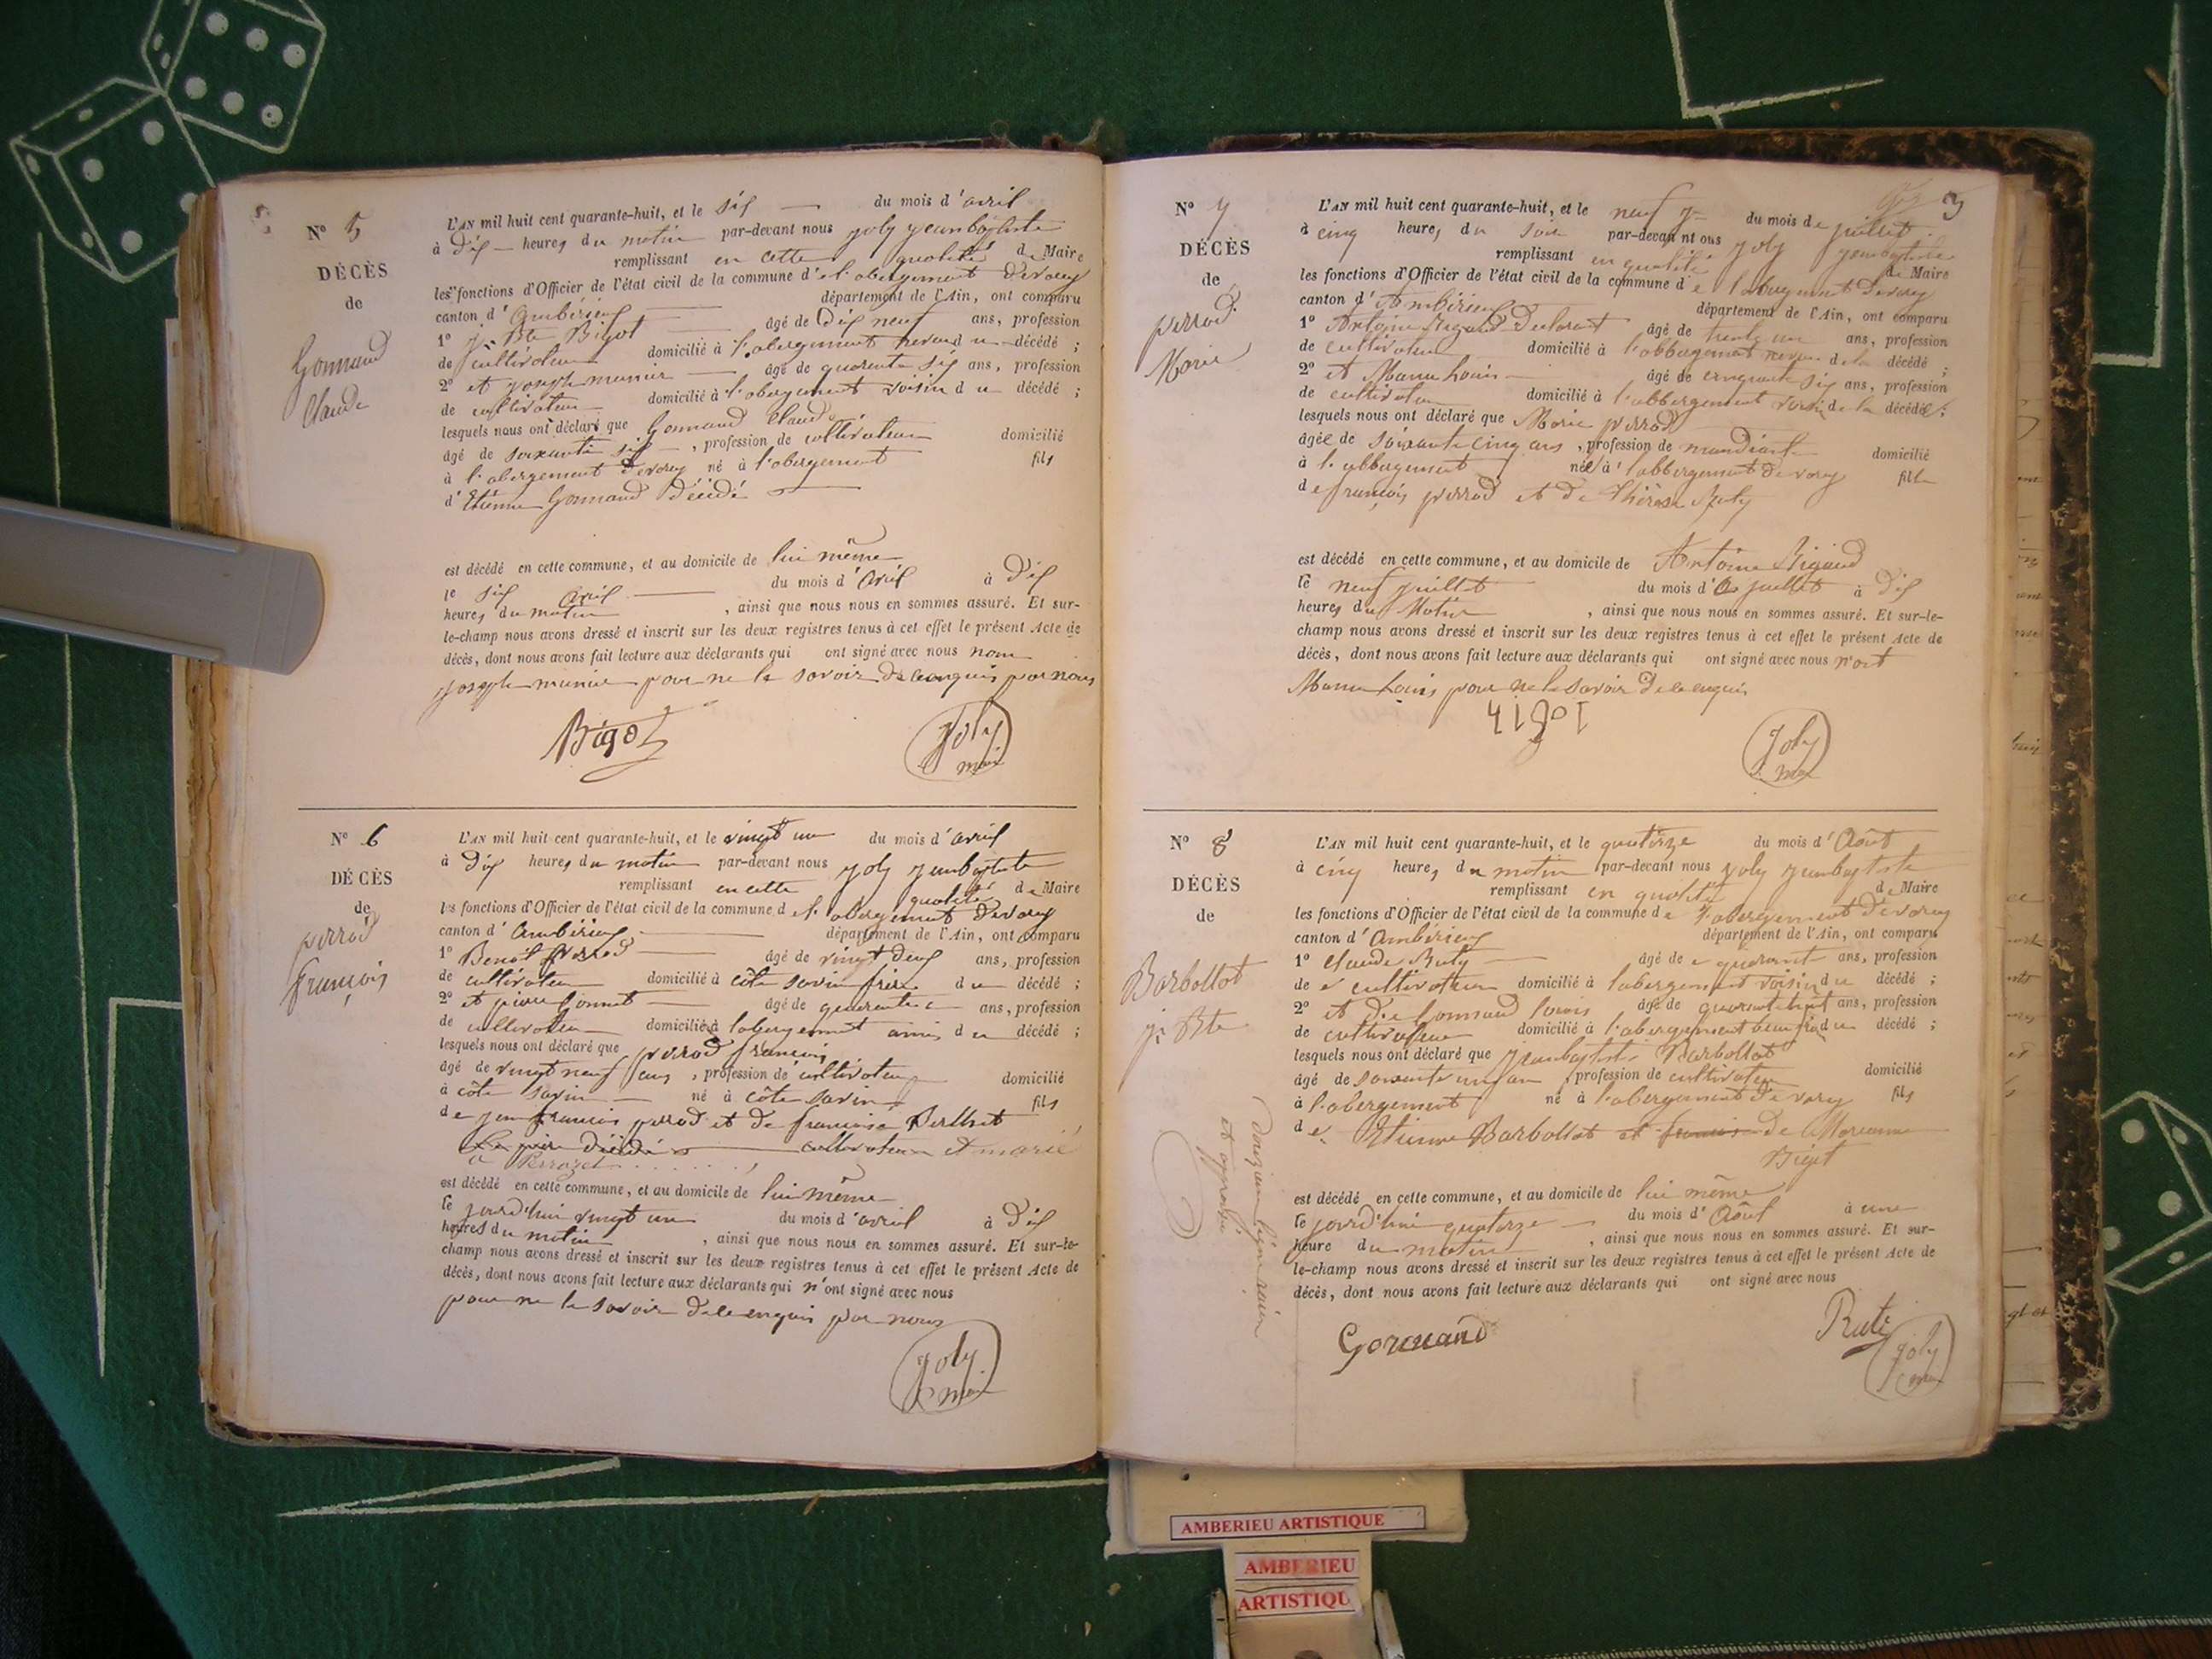 N° 5
DÉCÈS
de
Gonnand
Claude
L'AN mil huit cent quarante-huit, et le six du mois d'avril
à dix heures du matin par-devant nous joly jeanbaptiste
remplissant en cette qualité de Maire
les fonctions d'Officier de l'état civil de la commune d'el'abergement devarey
canton d'Ambérieux département de l'Ain, ont comparu
1° j. Bte Bigot âgé de dix neuf ans, profession
de cultivateur domicilié à l'abergement neveu du décédé ;
2° et joseph munier âgé de quarente six ans, profession
de cultivateur domicilié à l'abergement voisin du décédé ;
lesquels nous ont déclaré que Gonnand Claude
âgé de soixante six, profession de cultivateur domicilié
à l'abergement devarey né à l'abergement fils
d'Etienne Gonnand décédé
est décédé en cette commune, et au domicile de lui même
le six avril du mois d'avril à dix
heures du matin, ainsi que nous nous en sommes assuré. Et sur-
le-champ nous avons dressé et inscrit sur les deux registres tenus à cet effet le présent Acte de
décès, dont nous avons fait lecture aux déclarants qui ont signé avec nous non
joseph munier pour ne le savoir de ce enquis par nous
Bigot
joly
mair
N° 6
DÉCÈS
de
perrod
françois
L'AN mil huit cent quarante-huit, et le vingt un du mois d'avril
à dix heures du matin par-devant nous joly jeanbaptiste
remplissant en cette qualité de Maire
les fonctions d'Officier de l'état civil de la commune del'abergement devarey
canton d'Ambérieux département de l'Ain, ont comparu
1° Benoit perrod âgé de vingt deux ans, profession
de cultivateur domicilié à côte savin frère du décédé ;
2° et pierre bonnet âgé de quarente ans, profession
de cultivateur domicilié à labergement ami du décédé ;
lesquels nous ont déclaré que perrod françois
âgé de vingt neuf ans, profession de cultivateur domicilié
à côte savin né à côte savin fils
de jean françois perrod et de françoise Berthet
Le père décédé cultivateur et marié
a Perrozet
est décédé en cette commune, et au domicile de lui même
le jourd'hui vingt un du mois d'avril à dix
heures du matin, ainsi que nous nous en sommes assuré. Et sur-le-
champ nous avons dressé et inscrit sur les deux registres tenus à cet effet le présent Acte de
décès, dont nous avons fait lecture aux déclarants qui n'ont signé avec nous
pour ne le savoir de ce enquis par nous
joly
mair
3
N° 7
DÉCÈS
de
perrod
Marie
L'AN mil huit cent quarante-huit, et le neuf du mois de juillet
à cinq heures du soir par-devant nous joly jeanbaptiste
remplissant en qualité de Maire
les fonctions d'Officier de l'état civil de la commune de l'abergement devarey
canton d'Ambérieux département de l'Ain, ont comparu
1° Antoine Rigaud âgé de trente un ans, profession
de cultivateur domicilié à l'abbergement neveu de la décédé ;
2° et Louis âgé de cinquante six ans, profession
de cultivateur domicilié à l'abbergement voisin de la décédée ;
lesquels nous ont déclaré que Marie perrod
âgée de soixante cinq ans, profession de mandiant domicilié
à l'abbergement née à l'abbergement de varey fille
de françois perrod et de Thérèse Ruty
est décédé en cette commune, et au domicile de Antoine Rigaud
le neuf juillet du mois d'e juillet à dix
heures du Matin, ainsi que nous nous en sommes assuré. Et sur-le-
champ nous avons dressé et inscrit sur les deux registres tenus à cet effet le présent Acte de
décès, dont nous avons fait lecture aux déclarants qui ont signé avec nous n'ont
Louis pour ne le savoir de ce enquis
joly
mair
N° 8
DÉCÈS
de
Barbollat
j. Bte
L'AN mil huit cent quarante-huit, et le quatorze du mois d'Août
à cinq heures du matin par-devant nous joly jeanbaptiste
remplissant en qualité de Maire
les fonctions d'Officier de l'état civil de la commune de l'abergement de varey
canton d'Ambérieux département de l'Ain, ont comparu
1° Claude Ruty âgé de quarant ans, profession
de cultivateur domicilié à labergement voisin du décédé ;
2° et Gonnand Louis âgé de quarante huit ans, profession
de cultivateur domicilié à l'abergement beau frère du décédé ;
lesquels nous ont déclaré que jeanbaptiste Barbollat
âgé de soixante un an, profession de cultivateur domicilié
à l'abergement né à l'abergement de varey fils
de Etienne Barbollat et de Marianne
Bigot
est décédé en cette commune, et au domicile de lui même
le jourd'hui quatorze du mois d'Août à une
heure du matin, ainsi que nous nous en sommes assuré. Et sur-
le-champ nous avons dressé et inscrit sur les deux registres tenus à cet effet le présent Acte de
décès, dont nous avons fait lecture aux déclarants qui ont signé avec nous
Gonnand
Ruti
joly
mair
AMBERIEU ARTISTIQUE
AMBERIEU
ARTISTIQU